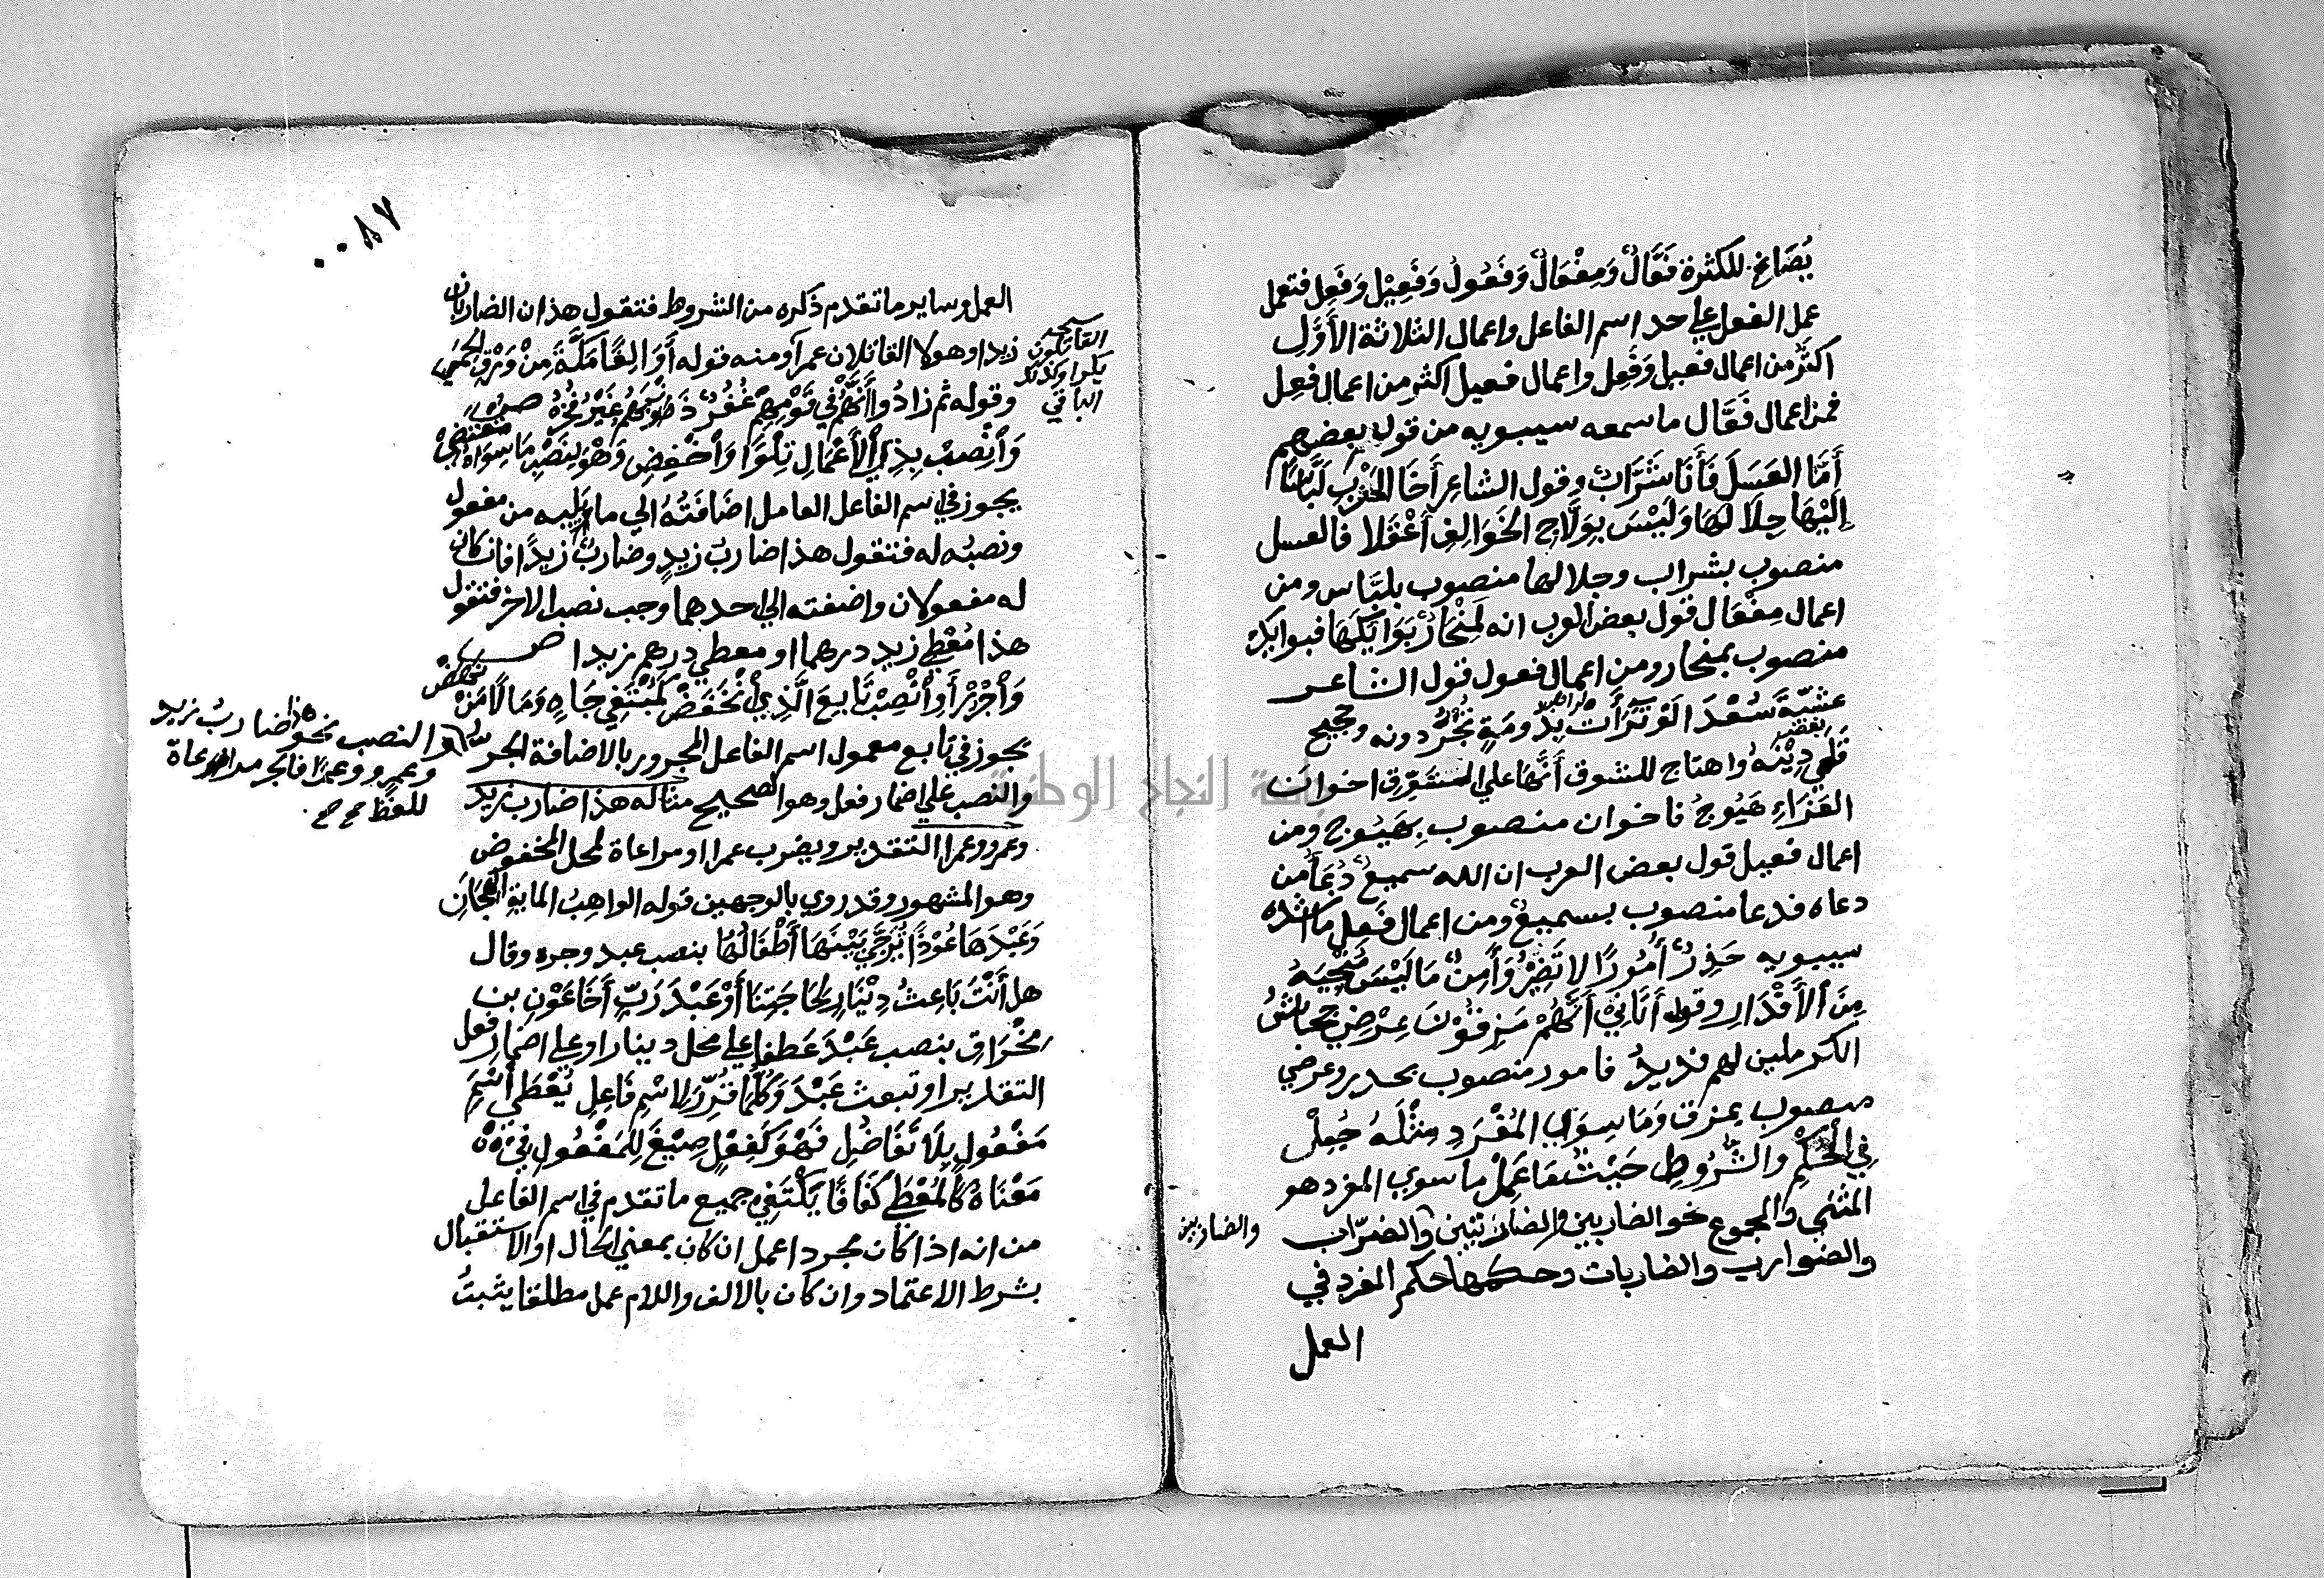 يُصَاغُ للكثرة فَعَّالٌ وَمِفْعَالٌ وَفَعُولٌ وَفَعِيْلٌ وَفَعِل فتعمل
عمل الفعل علي حد اسم الفاعل واعمال الثلاثة الأُوَلِ
اكثر من اعمال فعيل وَفَعِل واعمال فعيل اكثر من اعمال فعِل
فمن اعمال فَعَّال ما سمعه سيبويه من قول بعضهم
أَمَّا العَسَلَ فَأَنَا شَرَّابٌ وقول الشاعر أَخَا الحَرْبِ لَبَّاسًا
إِلَيْهَا جِلَالَهَا وَلَيْسَ بِوَلَّاجِ الخَوَالِفِ أَعْقَلَا فالعسل
منصوب بشراب وجلالها منصوب بلبَّاس ومن
اعمال مِفْعَال قول بعض العرب انه لَمِنْحَارٌ بَوَايِكَهَا فبوايك
منصوب بمنحار ومن اعمال فعول قول الشاعر
عشيَّةَ سُعْدَي لَوْ تَرَاأَتْ لراهب بِدُومَةٍ تُجُرٌ دونه وحجيج
قَلَي دِيْنَهُ واهتاج للشوق أَنَّهَا علي الشوق اخوان
العَزَاءِ هَيُوجُ فاخوان منصوب بِهَيُوج ومن
اعمال فعيل قول بعض العرب ان الله سميعٌ دُعَأَ من
دعاه فدعا منصوب بسميع ومن اعمال فَعِل ما انشده
سيبويه حَذِرٌ أُمُورًا لا تَضِيْرُ وَأَمِنٌ مَا لَيْسَ مُنْجِيَهُ
مِنَ الأَقْدَارِ وقوله أَتَانِيْ أَنَّهُمْ مَزِقُوْنَ عِرْضِي جِحَاشُ
الكرملين لهم فديدُ فامور منصوب بحذر وعرضي
منصوب بمزق وَمَا سِوَي المُفْرَدِ مِثْلَهُ جُعِلْ
فِي الحُكْمِ والشُّرُوطِ حَيْثُمَا عَمِلْ ما سوي المفرد هو
المثني والمجموع نحو الضاربين والضاربتين والضرَّاب
والضاربين
والضوارب والضاربات وحكمها حكم المفرد في
العمل
٠٠٨٧
العمل وساير ما تقدم ذكره من الشروط فتقول هذان الضاربان
زيدا وهولا القاتلان عمرا ومنه قوله أَوَالِفًا مَكَّةَ مِنْ وَرْقِ الحَمِي
بكرا وكذلك
الباقي
وقوله ثم زادُوا أَنَّهُمْ فِي قَوْمِهِمْ غُفُرٌ ذَنْبَهُمْ غَيْرُ فُخُرْ ص
وَانْصِبْ بِذِي الأَعْمَالِ تِلْوًا وَاخْفِضِ وَهْوَ لِنَصْبِ مَا سِوَاهُ مقتضي
يجوز في اسم الفاعل العامل اضافَتُهُ الي ما يليه من مفعول
ونصبُه له فتقول هذا ضاربُ زيدٍ وضاربٌ زيدًا فان كان
له مفعولان واضفته الي احدهما وجب نصب الاخر فتقول
هذا مُعْطِي زيدٍ درهما او معطي درهم زيدا ص
وَاجْرُرْ أَوِ انْصِبْ تَابِعَ الَّذِي انْخَفَضْ كَمُبْتَغِي جَاهٍ وَمَالًا مَنْ نهض
يجوز في تابع معمول اسم الفاعل المجرور بالاضافة الجر
والنصب نحو هذا ضاربُ زيد
وعمرٍو وعمرًا فالجر مراعاة
للفظ صح صح
والنصب علي اضمار فعل وهو الصحيح مثاله هذا ضارب زيد
وعمرو وعمرا التقدير ويضرب عمرا او مراعاة لمحل المخفوض
وهو المشهور وقد روي بالوجهين قوله الواهِبُ المايةِ الهِجَانِ
وَعَبْدَهَا عُوْذًا تُزَجِّي بَيْنَهَا أَطْفَالَهَا بنصب عبد وجره وقال
هل أَنْتَ بَاعِثُ دِيْنَارٍ لِحَاجَتِنَا أَوْ عَبْدَ رَبٍّ أَخَا عَوْنِ بن
مِخْرَاقِ بنصب عَبْدَ عَطفا علي محل دينار او علي اضمار فعل
التقدير او تبعث عَبْدَ وَكُلُّمَا قُرِّرَ لِاسْمِ فَاعِلِ يُعْطَي اسْمَ
مَفْعُولٍ بِلَا تَفَاضُلِ فَهْوَ كَفِعْلٍ صِيْغَ لِلمَفْعُولِ فِيْ
مَعْنَاهُ كَالمُعْطَي كَفَافًا يَكْتَفِي جميع ما تقدم في اسم الفاعل
من انه اذا كان مجرد اعمل ان كان بمعني الحال او الاستقبال
بشرط الاعتماد وان كان بالالف واللام عمل مطلقا يثبتُ
جامعة النجاح الوطنية